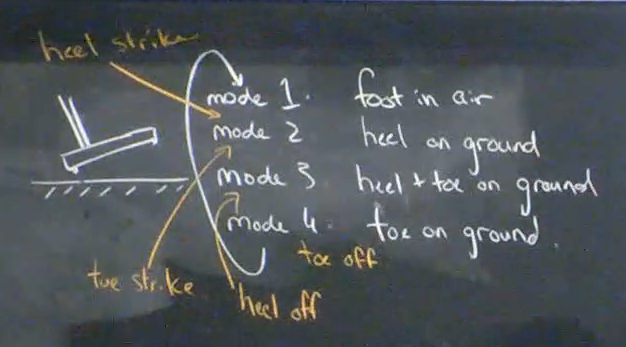 heel strike
mode 1. foot in air
mode 2 heel on ground
mode 3 heel + toe on ground
mode 4. toe on ground.
toe off
toe strike
heel off